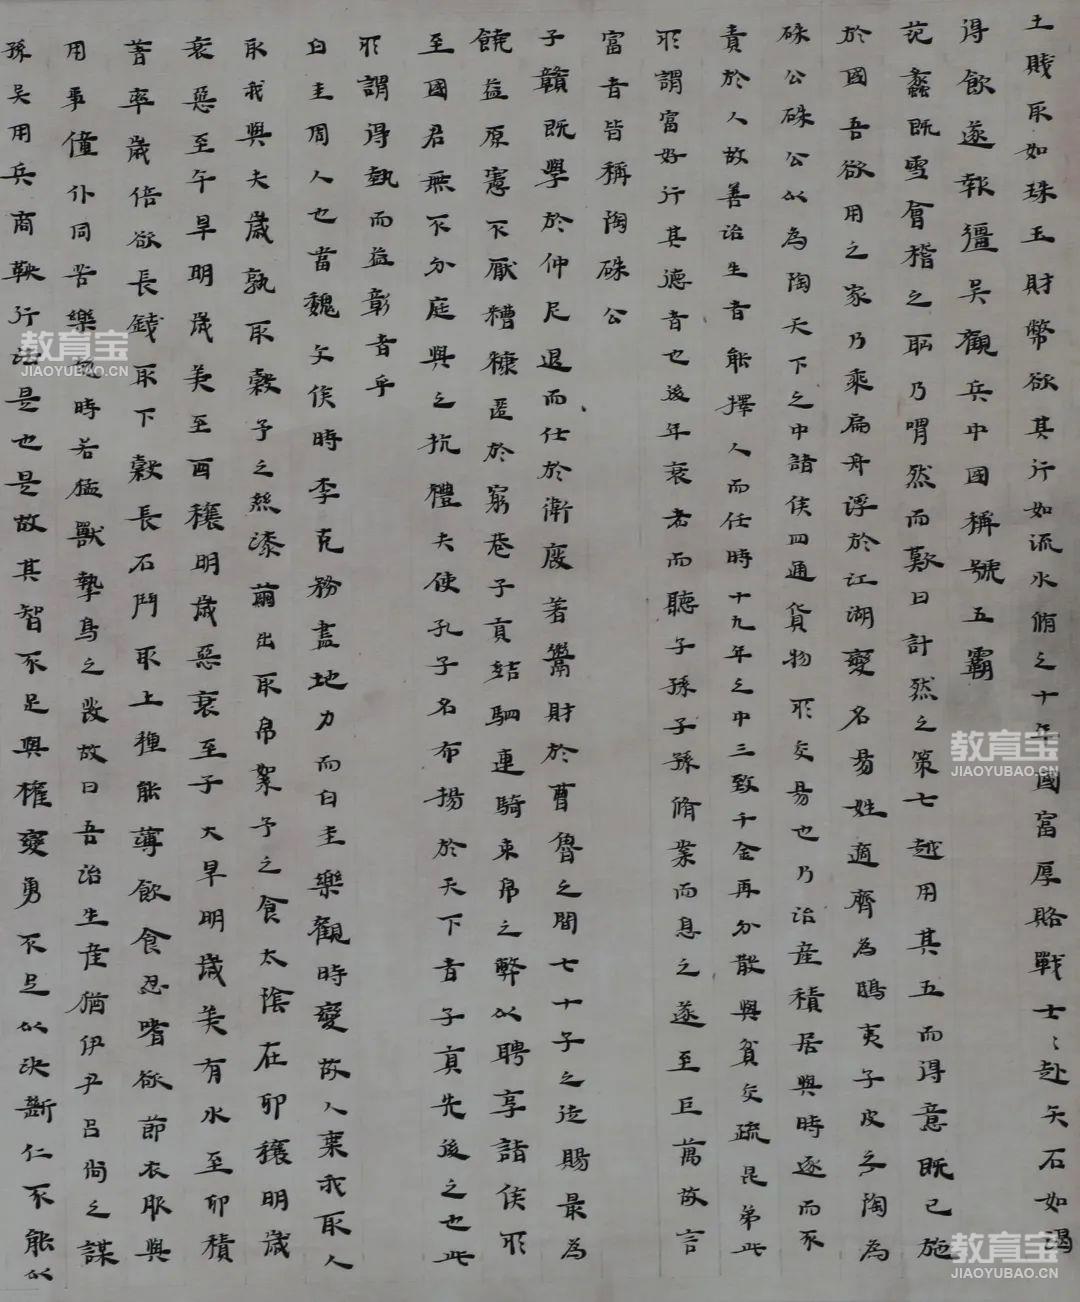 土賤取如珠玉財幣欲其行如流水脩之十年國富厚賂戰士〻赴矢石如渴
得飲遂報彊吳觀兵中國稱號五霸
范蠡既雪會稽之恥乃喟然而歎曰計然之策七越用其五而得意既已施
於國吾欲用之家乃乘扁舟浮於江湖變名易姓適齊為鴟夷子皮之陶為
硃公硃公以為陶天下之中諸侯四通貨物所交易也乃治産積居與時逐而不
責於人故善治生者能擇人而任時十九年之中三致千金再分散與貧交疏昆弟此
所謂富好行其德者也後年衰老而聽子孫子孫脩業而息之遂至巨萬故言
富者皆稱陶硃公
子贛既學於仲尼退而仕於衛廢著鬻財於曹魯之間七十子之徒賜最為
饒益原憲不厭糟糠匿於窮巷子貢結駟連騎束帛之幣以聘享諸侯所
至國君無不分庭與之抗禮夫使孔子名布揚於天下者子貢先後之也此
所謂得執而益彰者乎
白圭周人也當魏文侯時李克務盡地力而白圭樂觀時變故人棄我取人
取我與夫歲孰取穀予之絲漆繭出取帛絮予之食太陰在卯穰明歲
衰惡至午旱明歲美至酉穰明歲惡衰至子大旱明歲美有水至卯積
著率歲倍欲長錢取下穀長石鬥取上種能薄飲食忍嗜欲節衣服與
用事僮仆同苦樂趨時若猛獸摯鳥之發故曰吾治生産猶伊尹呂尚之謀
孫吳用兵商鞅行法是也是故其智不足與權變勇不足以決斷仁不能以
教育宝
JIAOYUBAO.CN
教育宝
JIAOYUBAO.CN
教育宝
JIAOYUBAO.CN